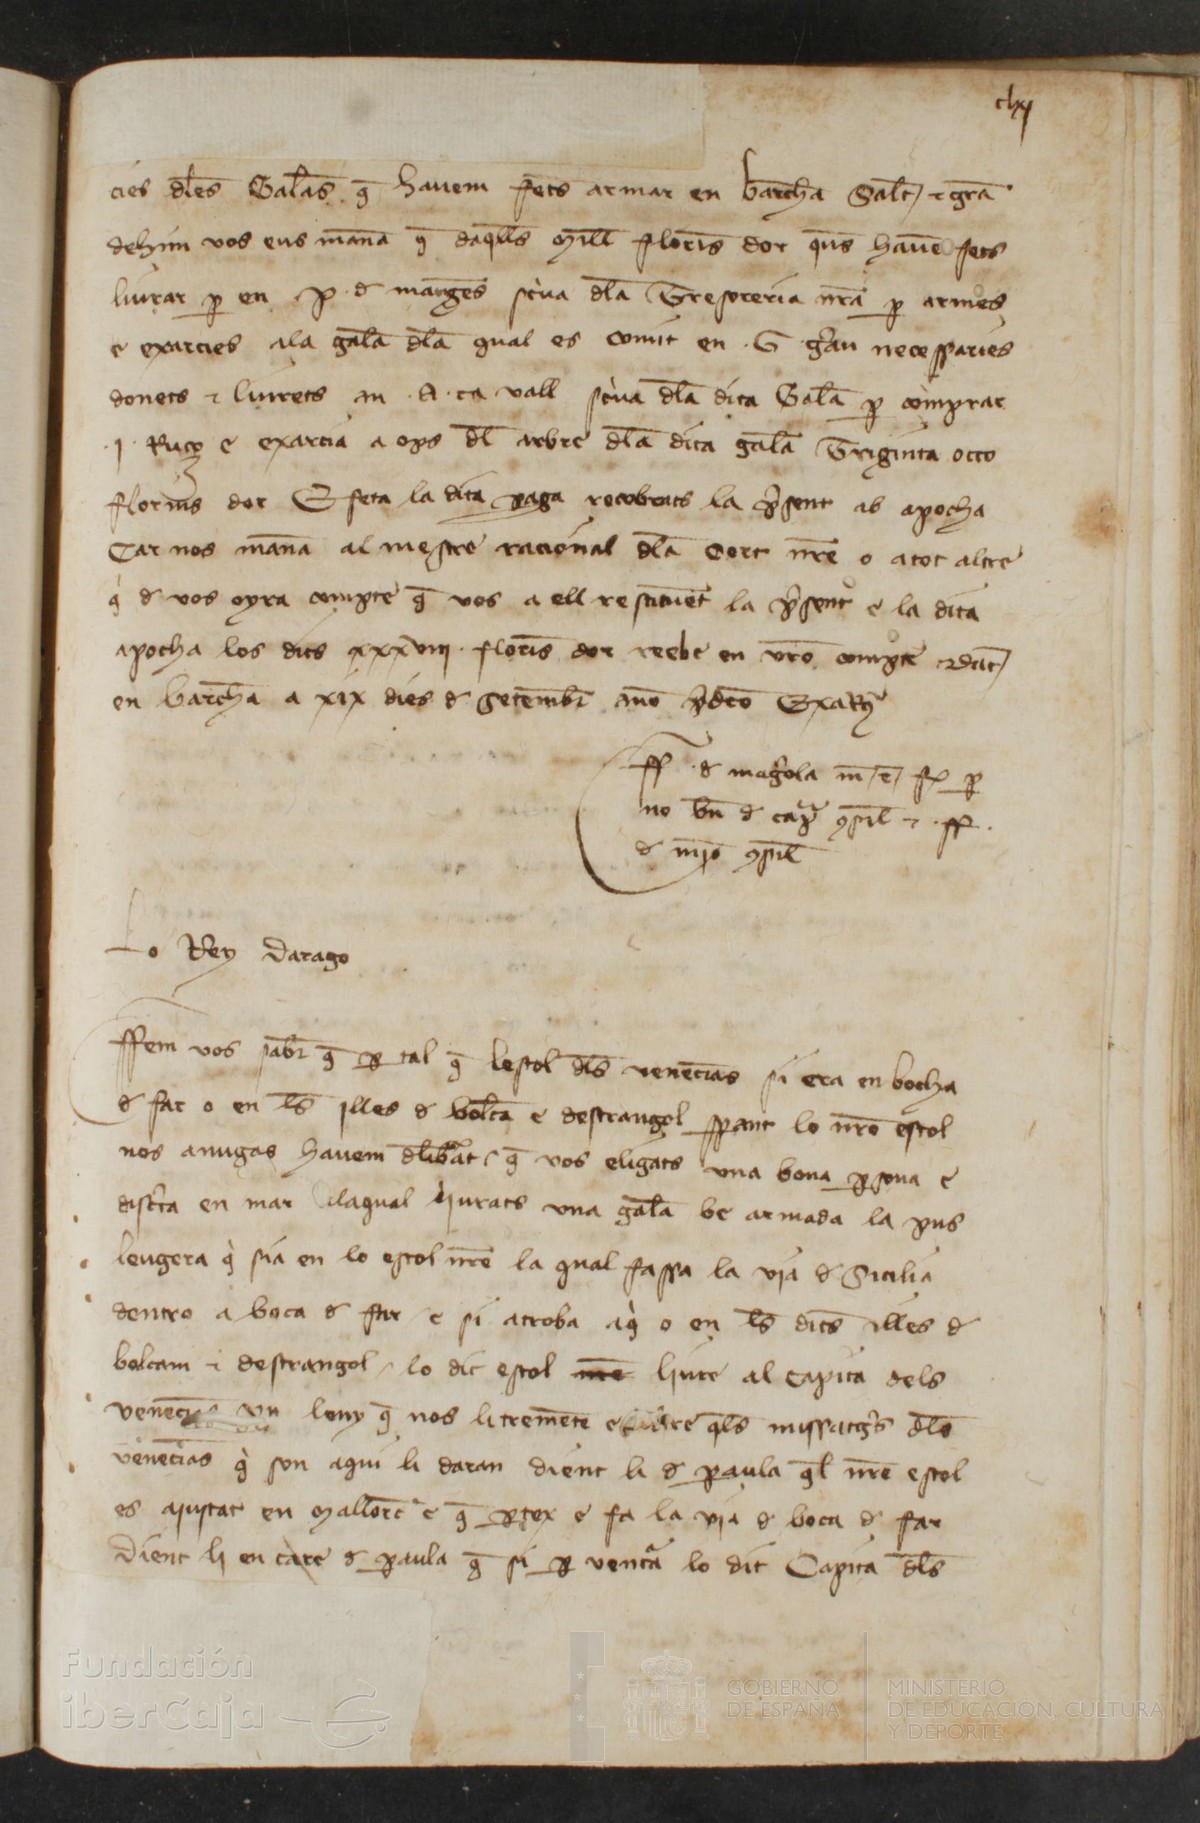 clxj
cies dles Galeas q̄ havem fets armar en barchā Salt̄ ⁊ grā
dehim vos eus manā q̄ daq̄lls mill florīs dor q̄us havē fets
liurar p̄ en .p. d mārges sc̀va dla Tresoreria nr̄a p̄ armes
e exarcies ala galēa dla qual es comit en .G. g̀au necessaries
donets ⁊ liurets an .A. ça vall sc̀va dla dita Galēa p̄ comprar
e exarcia a ops dl arbre dla dita galēa Triginta octo
florins dor E feta la dita paga recobrats la p̄sent ab apocha
Car nos manā al mestre racional dla Cort nr̄e o a tot altre
q̀ d vos oyra compte q̄ vos a ell restituent la p̄sent e la dita
apocha los dits xxxviij florīs dor reebe en vr̄o compte dat̄
en barchā a xix dies d Setembr̄ ano p̄dco
d magola
no
d
Lo Rey Darago
Ffem vos sabr̄ q̄ p̄ tal q̄ lestol dls venecians si era en bocha
d far o en ls̄ illes d bolcā e destrangol sp̄ant lo nr̄o estol
nos anugas havem dlib̄at q̄ vos eligats una bona p̄sona e
disc̄ta en mar alaqual liurats una galēa be armada la pus
leugera q̀ sia en lo estol nr̄e la qual fassa la via d Sicilia
dentro a boca d far e si atroba aq̀ o en ls̄ dits illes d
bolcam ⁊ destrangol lo dit estol nr̄e liure al capita dels
venecians un leny q̄ nos li tremete e q̄ls missatgs̄ dls
venecians q̀ son aqui li daran dient li d paula q̄l nr̄e estol
es ajustat en Mallorc̄ e q̄ p̄tex e fa la via d boca d far
Dient li encare d paula q̄ si p̄ ventā lo dit Capita dls
Fundación
iberCaja
GOBIERNO
DE ESPAÑA
MINISTERIO
DE EDUCACIÓN, CULTURA
Y DEPORTE